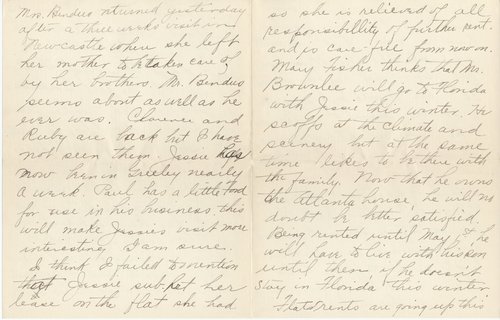 Mrs. Bendure returned yesterday
after a three weeks visit in
Newcastle where she left
her mother to be taken care of
by her brothers. Mr. Bendure
seems about as well as he
ever was. Clarence and
Ruby are back but I have
not seen them. Jessie has
now been in Greeley nearly
a week. Paul has a little Ford
for use in his business, this
will make Jessie's visit more
interesting I am sure.
I think I failed to mention
that Jessie sub-let her
lease on the flat she had
so she is relieved of all
responsibility of further rent.
and is care free from now on.
Mary Fisher thinks that Mr.
Brownlee will go to Florida
with Jessie this winter. He
scoffs at the climate and
scenery but at the same
time likes to be there with
the family. Now that he owns
the Atlanta house, he will no
doubt be better satisfied.
Being rented until May 1st, he
will have to live with his son
until then, if he doesn't
stay in Florida this winter
Flats rents are going up this